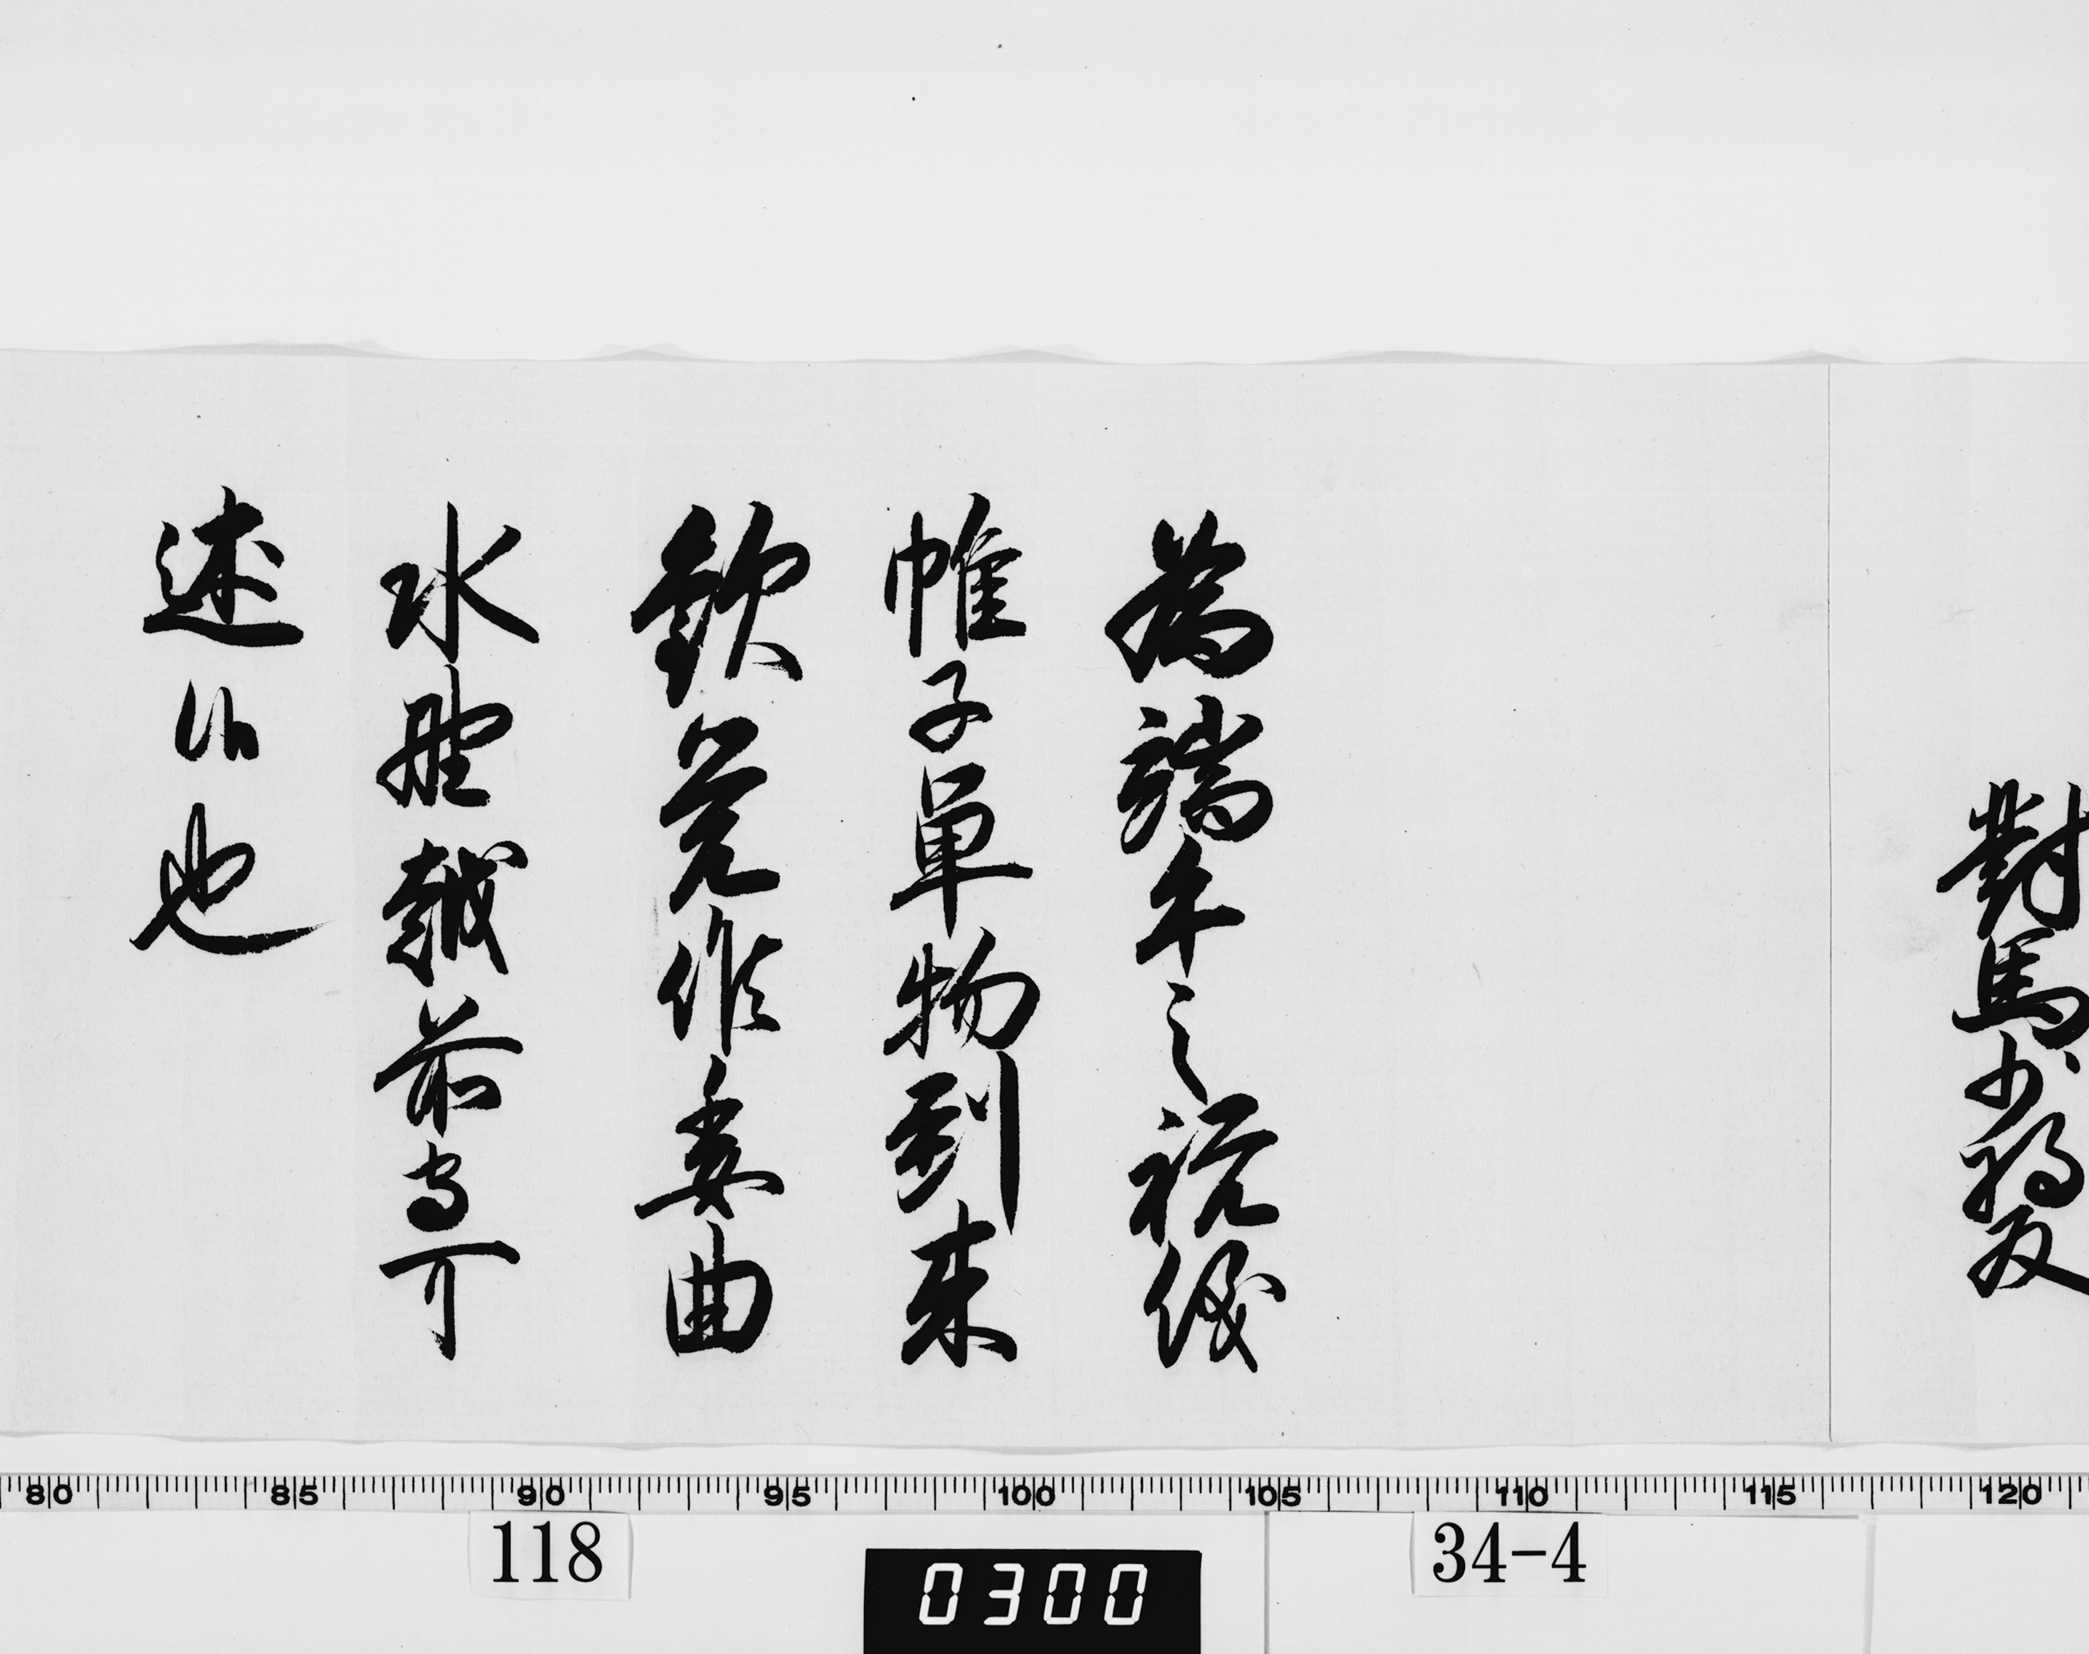 對馬少将殿
為端午之祝儀
帷子單物到来
歓覚候委曲
水野越前守可
述候也
80 85 90 95 100 105 110 115 120
118
0300
34-4